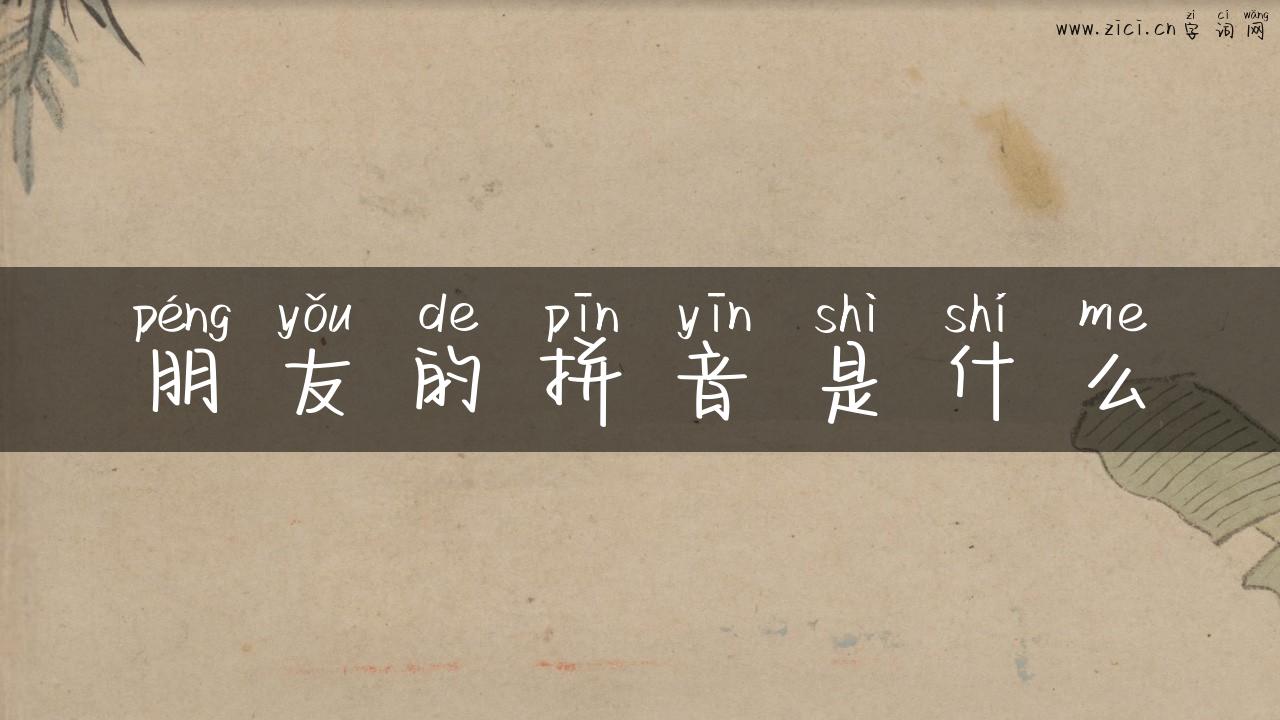 zì cí wǎng
www.zici.cn 字词网
péng yǒu de pīn yīn shì shí me
朋友的拼音是什么